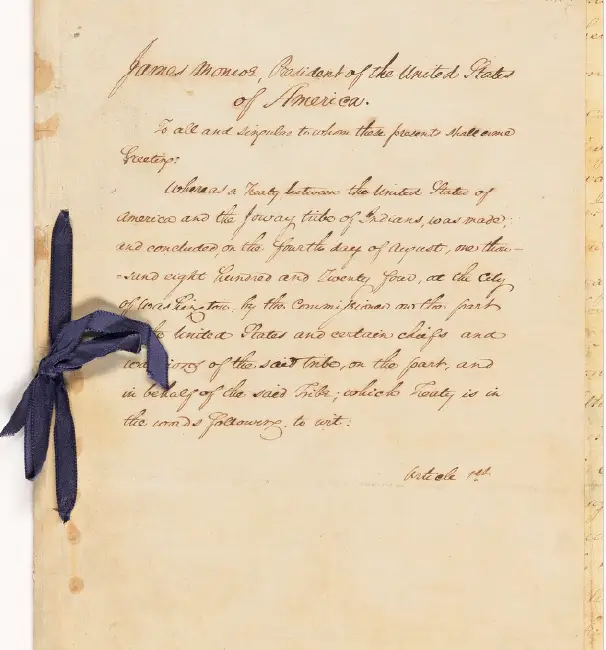 James Monroe, President of the United States
of America.
To all and singular to whom these presents shall come
Greeting:
Whereas a Treaty between the United States of
America and the Ioway tribe of Indians, was made,
and concluded, on the fourth day of August, one thou-
-sand eight hundred and Twenty four, at the City
of Washington, by the Commissioner on the part
the United States and certain chiefs and
of the said tribe, on the part, and
in behalf of the said Tribe; which Treaty is in
the words following, to wit:
Article 1st